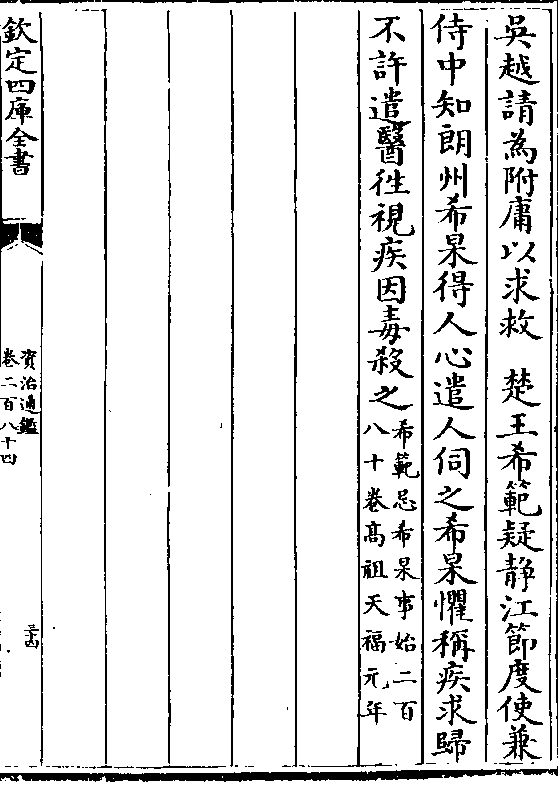 吳越請為附庸以求救　楚王希範疑静江節度使兼
侍中知朗州希杲得人心遣人伺之希杲懼稱疾求歸
不許遣醫徃視疾因毒殺之
希範忌希杲事始二百
八十卷高祖天福元年
欽定四庫全書
資治通鑑
卷二百八十四
三十四